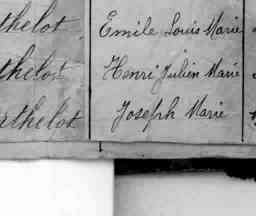 thelot Emile Louis Marie
thelot Henri Julien Marie
rthelot Joseph Marie